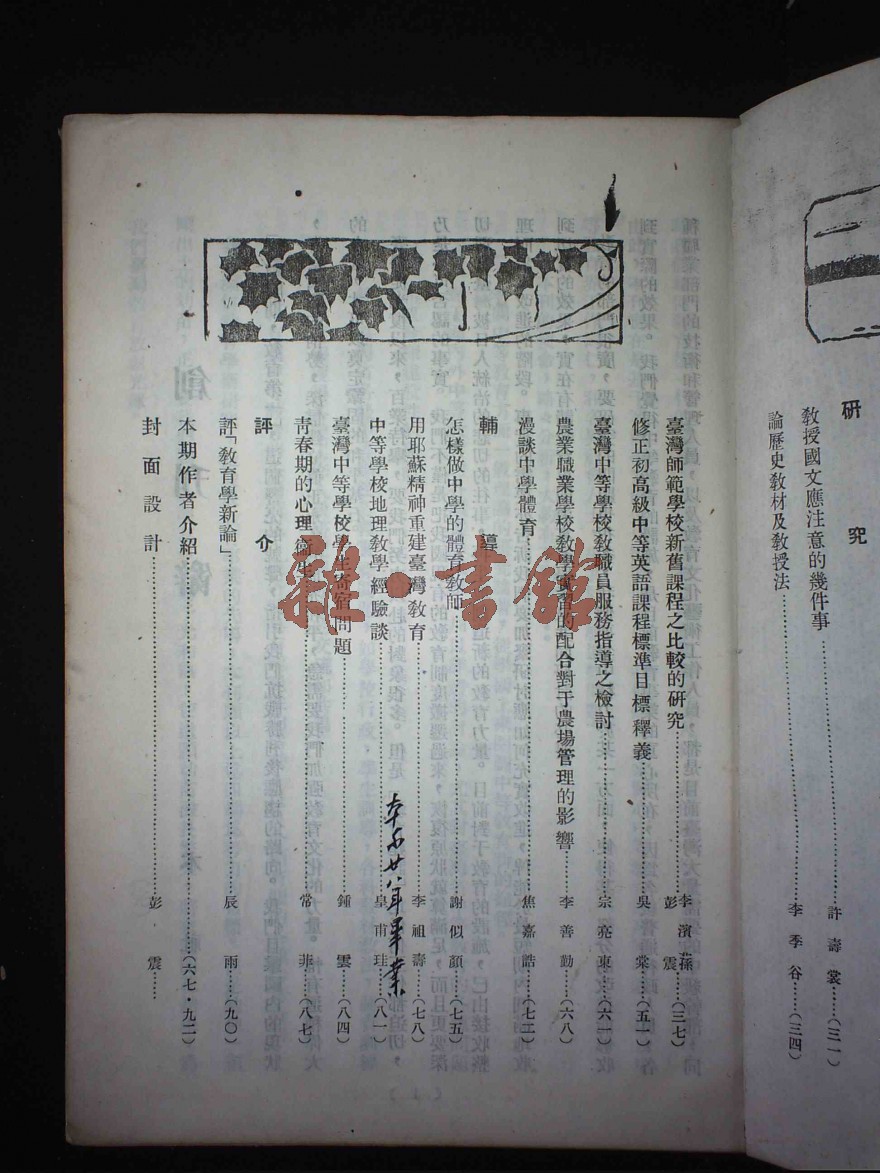 研究
教授國文應注意的幾件事……許壽裳……(三一)
論歷史教材及教授法……李季谷……(三四)
臺灣師範學校新舊課程之比較的研究……李濱蓀 彭震……(三七)
修正初高級中等英語課程標準目標釋義……吳棠……(五一)
臺灣中等學校教職員服務指導之檢討……宗亮東……(六一)
農業職業學校教學實習的配合對于農場管理的影響……李善勤……(六八)
漫談中學體育……焦嘉誥……(七二)
輔導
怎樣做中學的體育教師……謝似顏……(七五)
用耶蘇精神重建臺灣教育……李祖壽……(七八)
中等學校地理教學經驗談……皇甫珪……(八一)
臺灣中等學校學生寄宿問題……鍾雲……(八四)
青春期的心理衛生……常菲……(八七)
評介
評「教育學新論」……辰雨……(九〇)
本期作者介紹……(六七·九二)
封面設計……彭震……
雜·書館